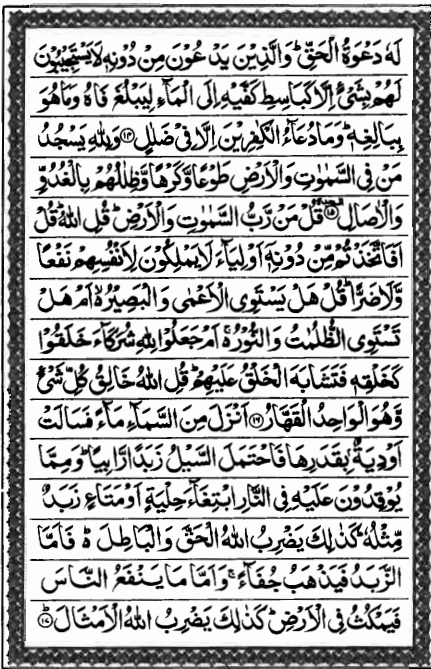 لَهٗ دَعْوَةُ الْحَقِّ ؕ وَالَّذِيْنَ يَدْعُوْنَ مِنْ دُوْنِهٖ لَا يَسْتَجِيْبُوْنَ
لَهُمْ بِشَيْءٍ اِلَّا كَبَاسِطِ كَفَّيْهِ اِلَى الْمَآءِ لِيَبْلُغَ فَاهُ وَمَا هُوَ
بِبَالِغِهٖ ؕ وَمَا دُعَآءُ الْكٰفِرِيْنَ اِلَّا فِيْ ضَلٰلٍ ﴿۱۴﴾ وَلِلّٰهِ يَسْجُدُ
مَنْ فِي السَّمٰوٰتِ وَالْاَرْضِ طَوْعًا وَّكَرْهًا وَّظِلٰلُهُمْ بِالْغُدُوِّ
وَالْاٰصَالِ ﴿۱۵﴾ قُلْ مَنْ رَّبُّ السَّمٰوٰتِ وَالْاَرْضِ ؕ قُلِ اللّٰهُ ؕ قُلْ
اَفَاتَّخَذْتُمْ مِّنْ دُوْنِهٖۤ اَوْلِيَآءَ لَا يَمْلِكُوْنَ لِاَنْفُسِهِمْ نَفْعًا
وَّلَا ضَرًّا ؕ قُلْ هَلْ يَسْتَوِي الْاَعْمٰى وَالْبَصِيْرُ ۙ اَمْ هَلْ
تَسْتَوِي الظُّلُمٰتُ وَالنُّوْرُ ۚ اَمْ جَعَلُوْا لِلّٰهِ شُرَكَآءَ خَلَقُوْا
كَخَلْقِهٖ فَتَشَابَهَ الْخَلْقُ عَلَيْهِمْ ؕ قُلِ اللّٰهُ خَالِقُ كُلِّ شَيْءٍ
وَّهُوَ الْوَاحِدُ الْقَهَّارُ ﴿۱۶﴾ اَنْزَلَ مِنَ السَّمَآءِ مَآءً فَسَالَتْ
اَوْدِيَةٌۢ بِقَدَرِهَا فَاحْتَمَلَ السَّيْلُ زَبَدًا رَّابِيًا ؕ وَمِمَّا
يُوْقِدُوْنَ عَلَيْهِ فِي النَّارِ ابْتِغَآءَ حِلْيَةٍ اَوْ مَتَاعٍ زَبَدٌ
مِّثْلُهٗ ؕ كَذٰلِكَ يَضْرِبُ اللّٰهُ الْحَقَّ وَالْبَاطِلَ ؕ فَاَمَّا
الزَّبَدُ فَيَذْهَبُ جُفَآءً ۚ وَاَمَّا مَا يَنْفَعُ النَّاسَ
فَيَمْكُثُ فِي الْاَرْضِ ؕ كَذٰلِكَ يَضْرِبُ اللّٰهُ الْاَمْثَالَ ؕ ﴿۱۷﴾